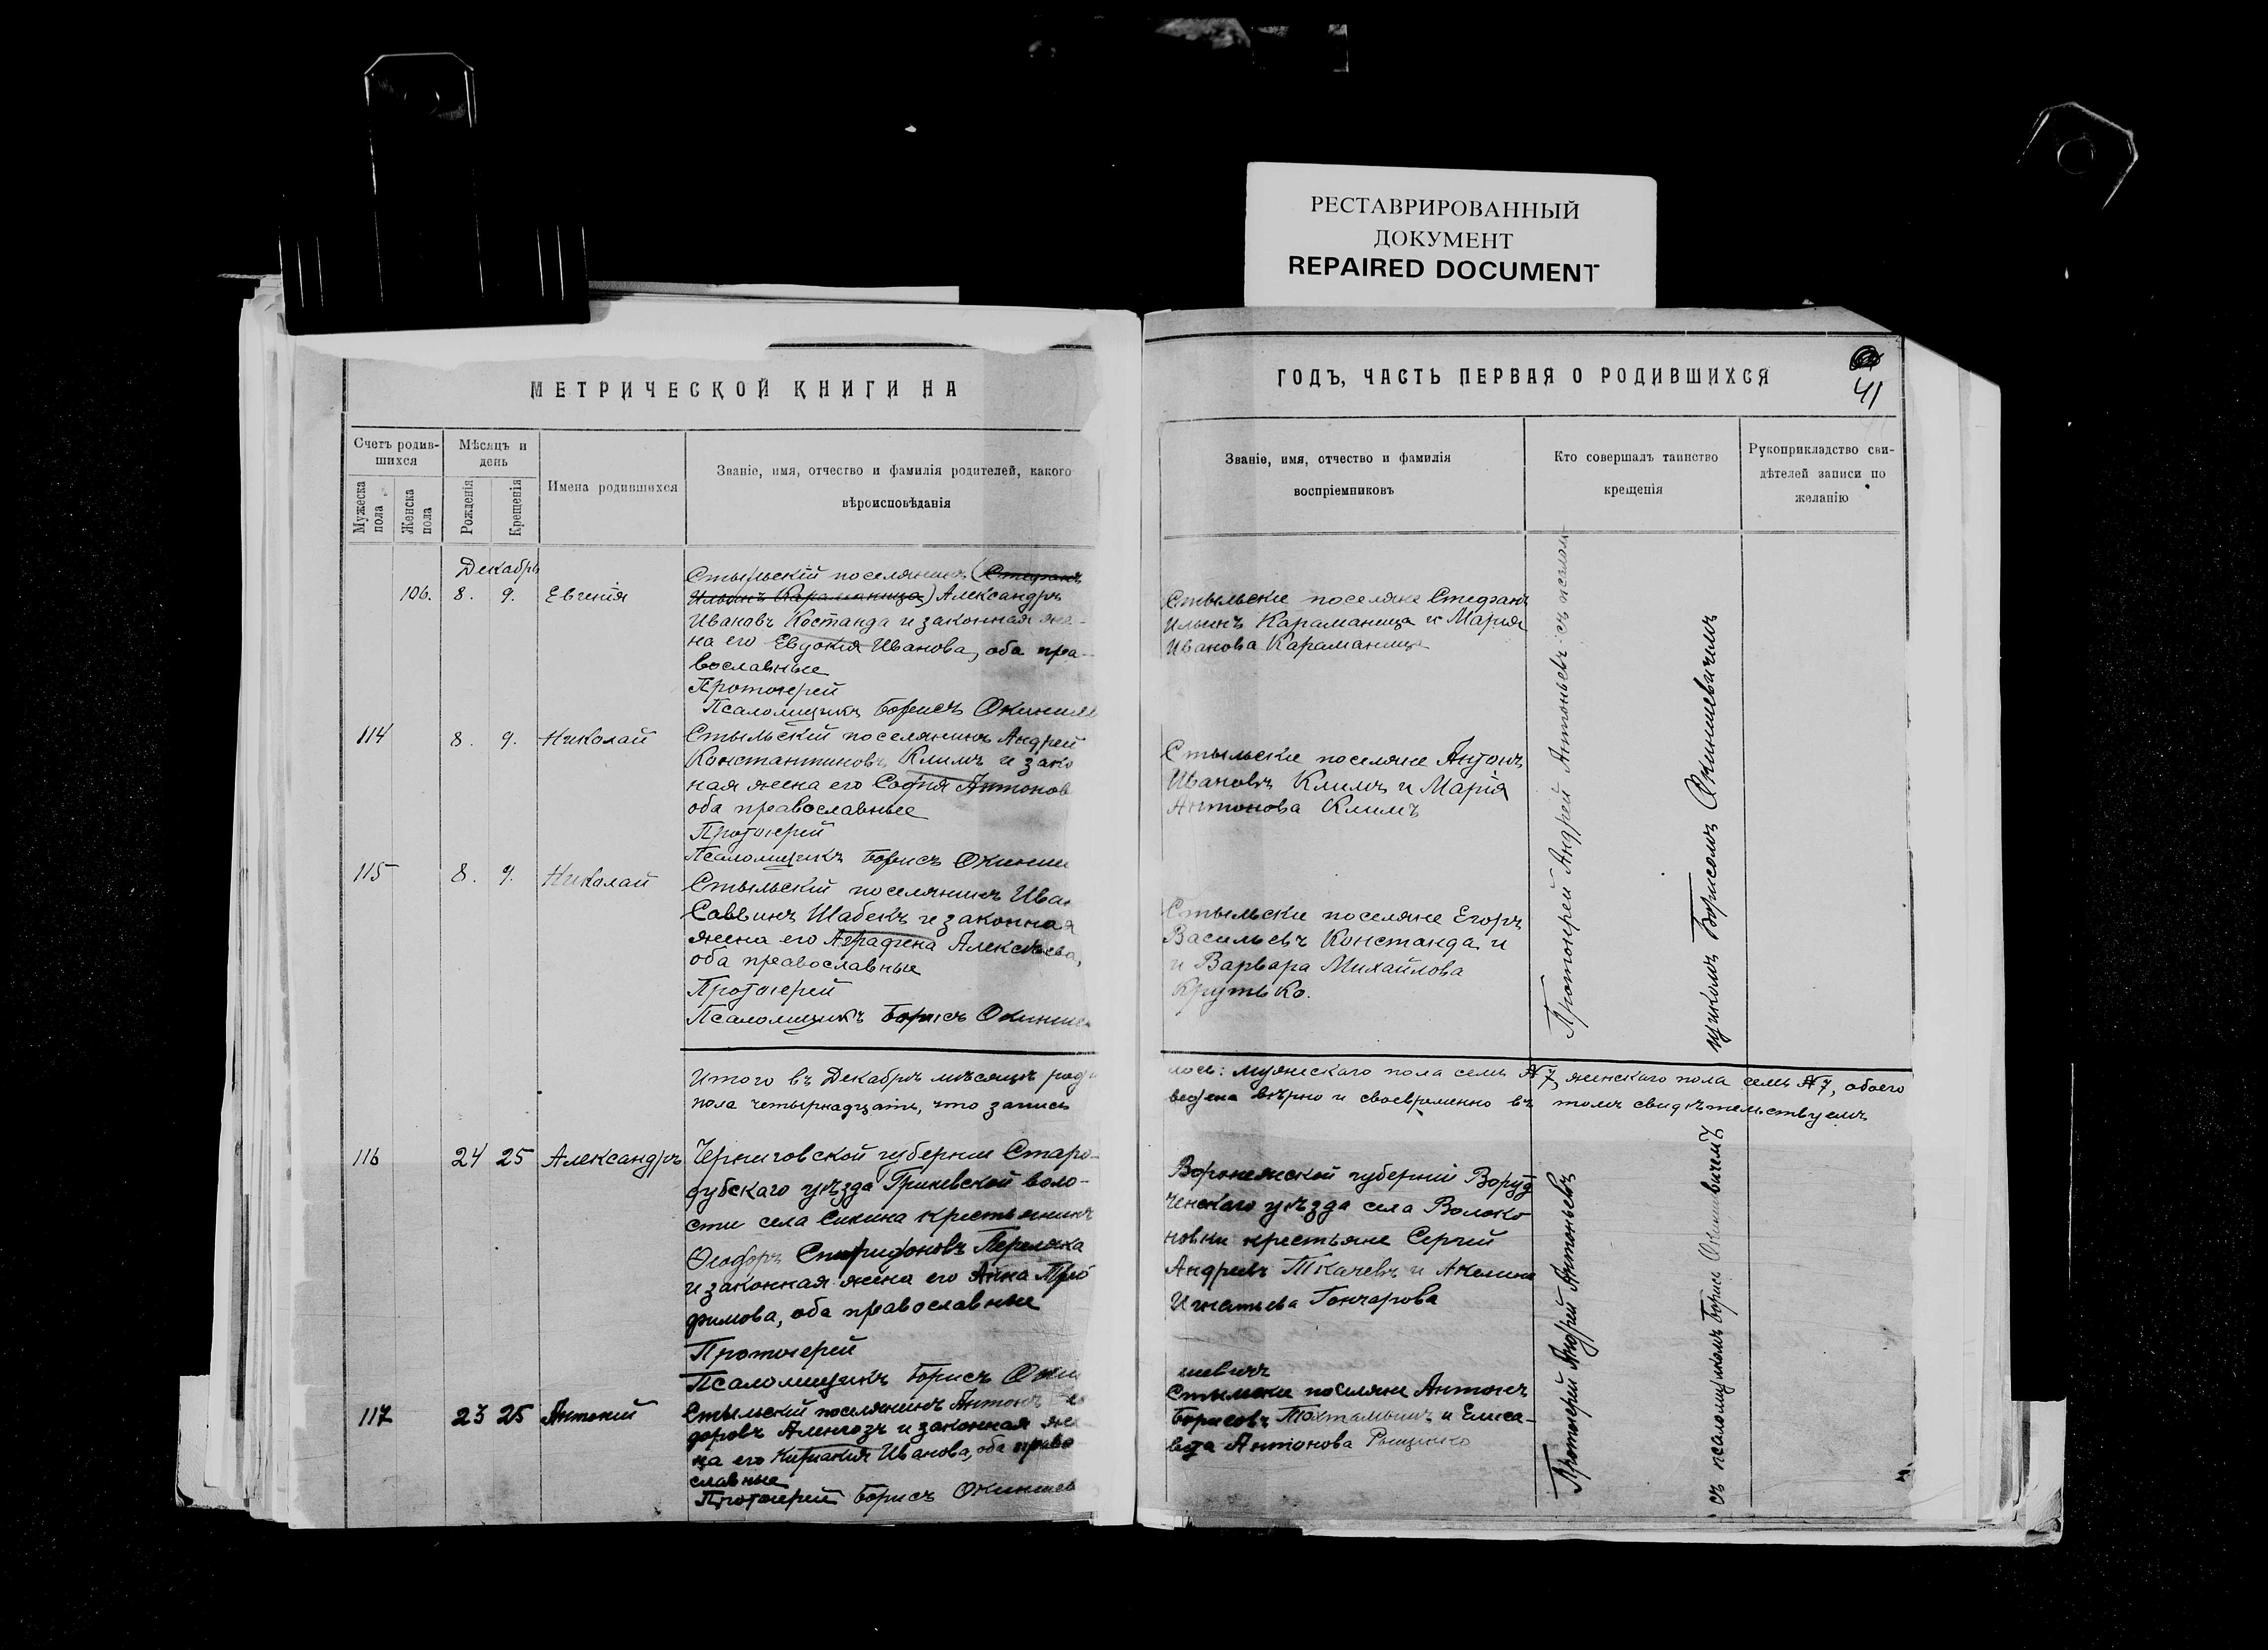 РЕСТАВРИРОВАННЫЙ
ДОКУМЕНТ
REPAIRED DOCUMENT
МЕТРИЧЕСКОЙ КНИГИ НА
Счетъ родив-
шихся
Мужеска
пола
Женска
пола
Мѣсяцъ и
день
Рожденія
Крещенія
Имена родившихся
Званіе, имя, отчество и фамилія родителей, какого
вѣроисповѣданія
Декабрь
106. 8. 9. Евгенія
Стыльскій поселянинъ (Стефанъ
Ильинъ Караманица) Александръ
Ивановъ Костанда и законная же-
на его Евдокія Иванова, оба пра-
вославные
Протоіерей
Псаломщикъ Борисъ
114 8. 9. Николай
Стыльскій поселянинъ Андрей
Константиновъ Климъ и зако
ная жена его Софія Антонов
оба православные
Протоіерей
Псаломщикъ Борисъ
115 8. 9. Николай
Стыльскій поселянинъ Иван
Саввинъ Шабекъ и законная
жена его Аграфена Алексѣева,
оба православные
Протоіерей
Псаломщикъ Борисъ
Итого въ Декабрѣ мѣсяцѣ роди
пола четырнадцать, что запись
116 24 25 Александръ
Черниговской губерніи Старо-
дубскаго уѣзда Гриневской воло-
сти села крестьянинъ
Ѳеодоръ Спиридоновъ
и законная жена его Анна Тро
фимова, оба православные
Протоіерей
Псаломщикъ Борисъ
117 23 25 Антоній
Стыльскій поселянинъ Антонъ
доровъ и законная же
на его Киріакія Иванова, оба право
славные
Протоіерей Борисъ
ГОДЪ, ЧАСТЬ ПЕРВАЯ О РОДИВШИХСЯ
41
Званіе, имя, отчество и фамилія
воспріемниковъ
Кто совершалъ таинство
крещенія
Рукоприкладство сви-
дѣтелей записи по
желанію
Стыльскіе поселяне Стефанъ
Ильинъ Караманица и Марія
Иванова Караманица
Стыльскіе поселяне Антонъ
Ивановъ Климъ и Марія
Антонова Климъ
Стыльскіе поселяне Егоръ
Васильевъ Констанда и
и Варвара Михайлова
Крутько.
Протоіерей Андрей Антоньевъ съ псалом-
щикомъ Борисомъ Окиншевичемъ
лось: мужескаго пола семь №7, женскаго пола семь №7, обоего
ведена вѣрно и своевременно въ томъ свидѣтельствуемъ
Воронежской губерніи
ченскаго уѣзда села Волоко
новки крестьяне Сергій
Андреевъ Ткачевъ и
Игнатьева Гончарова
шевичъ
Стыльскіе поселяне Антонъ
Борисовъ Тохтамышъ и Елиса-
вета Антонова
Протоіерей Андрей Антоньевъ
съ псаломщикомъ Борисъ Окиншевичемъ